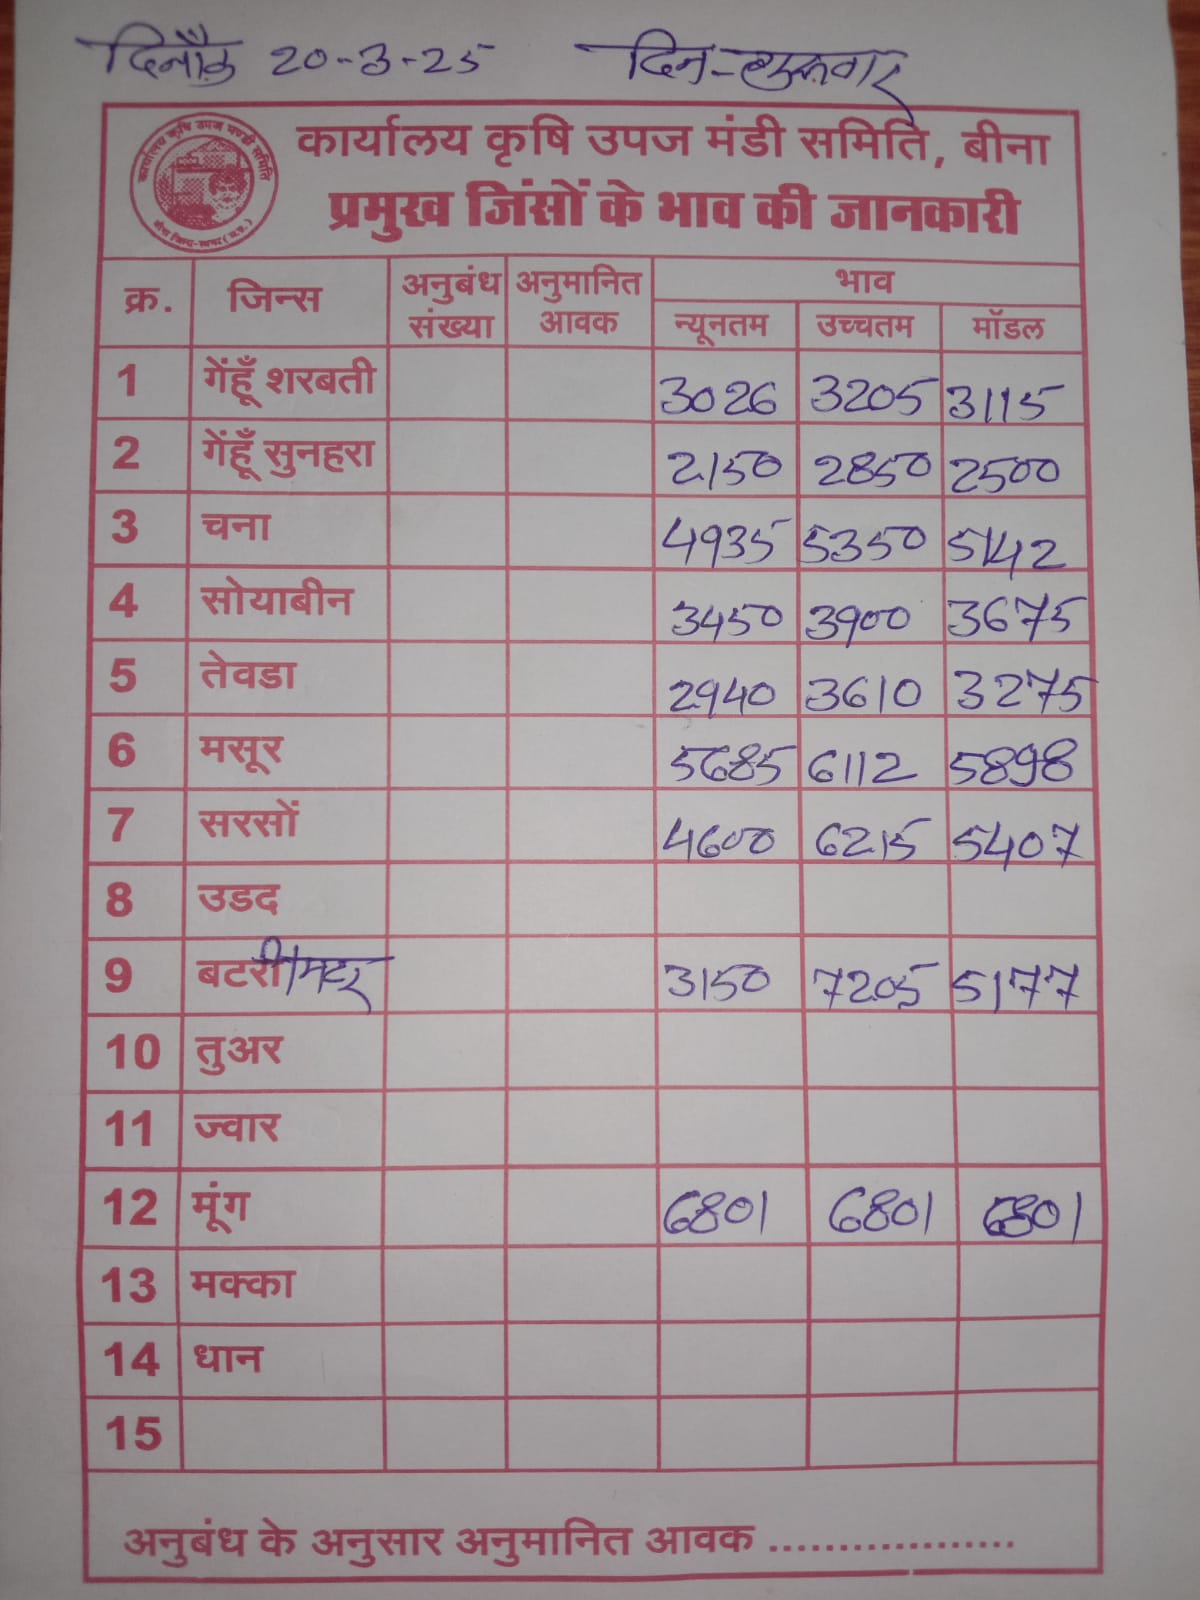 दिनाँक 20-3-25 दिन-शुक्रवार
कार्यालय कृषि उपज मंडी समिति, बीना
प्रमुख जिंसों के भाव की जानकारी
क्र. जिन्स अनुबंध संख्या अनुमानित आवक भाव
न्यूनतम उच्चतम मॉडल
1 गेंहूँ शरबती 3026 3205 3115
2 गेंहूँ सुनहरा 2150 2850 2500
3 चना 4935 5350 5142
4 सोयाबीन 3450 3900 3675
5 तेवडा 2940 3610 3275
6 मसूर 5685 6112 5898
7 सरसों 4600 6215 5407
8 उडद
9 बटरी/मटर 3150 7205 5177
10 तुअर
11 ज्वार
12 मूंग 6801 6801 6801
13 मक्का
14 धान
15
अनुबंध के अनुसार अनुमानित आवक ..................